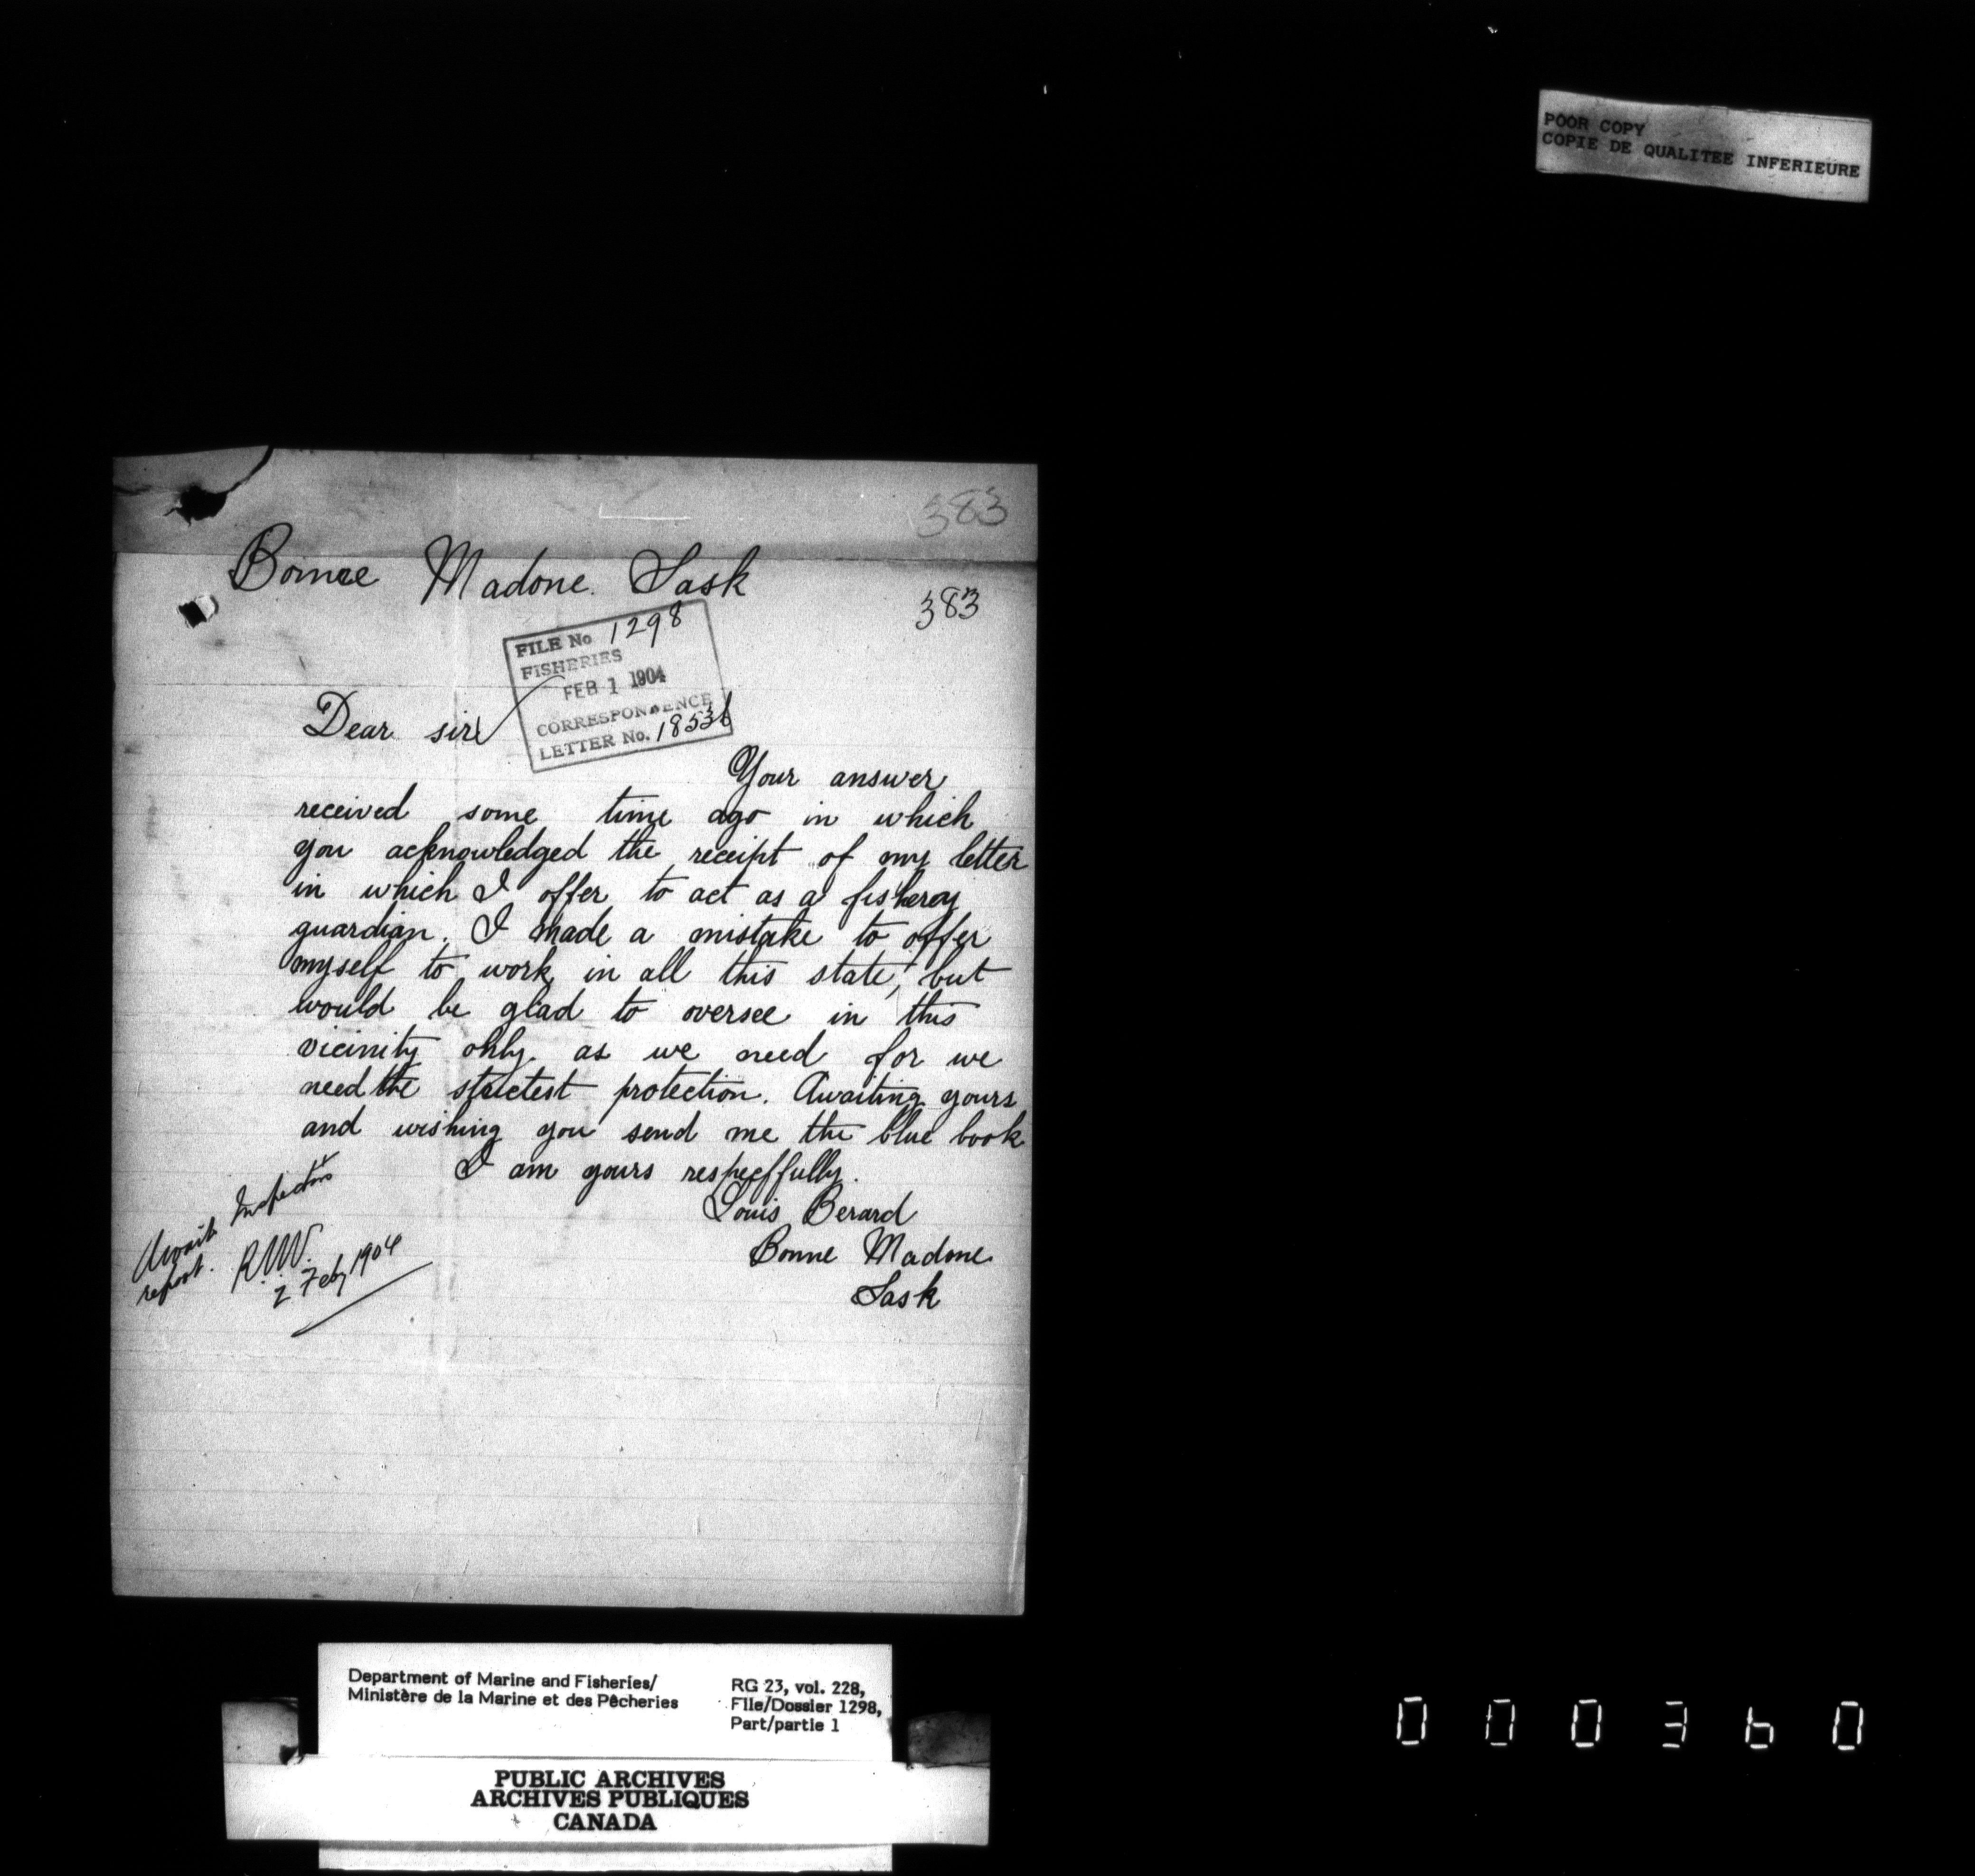 POOR COPY
COPIE DE QUALITEE INFERIEURE
383
Bonne Madone. Sask
383
FILE No 1298
FISHERIES
FEB 1 1904
CORRESPONDENCE
LETTER No. 18536
Dear sir
Your answer
received some time ago in which
you acknowledged the receipt of my letter
in which I offer to act as a fishery
guardian. I made a mistake to offer
myself to work in all this state, but
would be glad to oversee in this
vicinity only. as we need for we
need the strictest protection. Awaiting yours
and wishing you send me the blue book
I am yours respectfully.
Louis Berard
Bonne Madone
Sask
Await Inspector's
report. R.N.V.
2 Feby 1904
Department of Marine and Fisheries/
Ministère de la Marine et des Pêcheries
RG 23, vol. 228,
File/Dossier 1298,
Part/partie 1
PUBLIC ARCHIVES
ARCHIVES PUBLIQUES
CANADA
000360